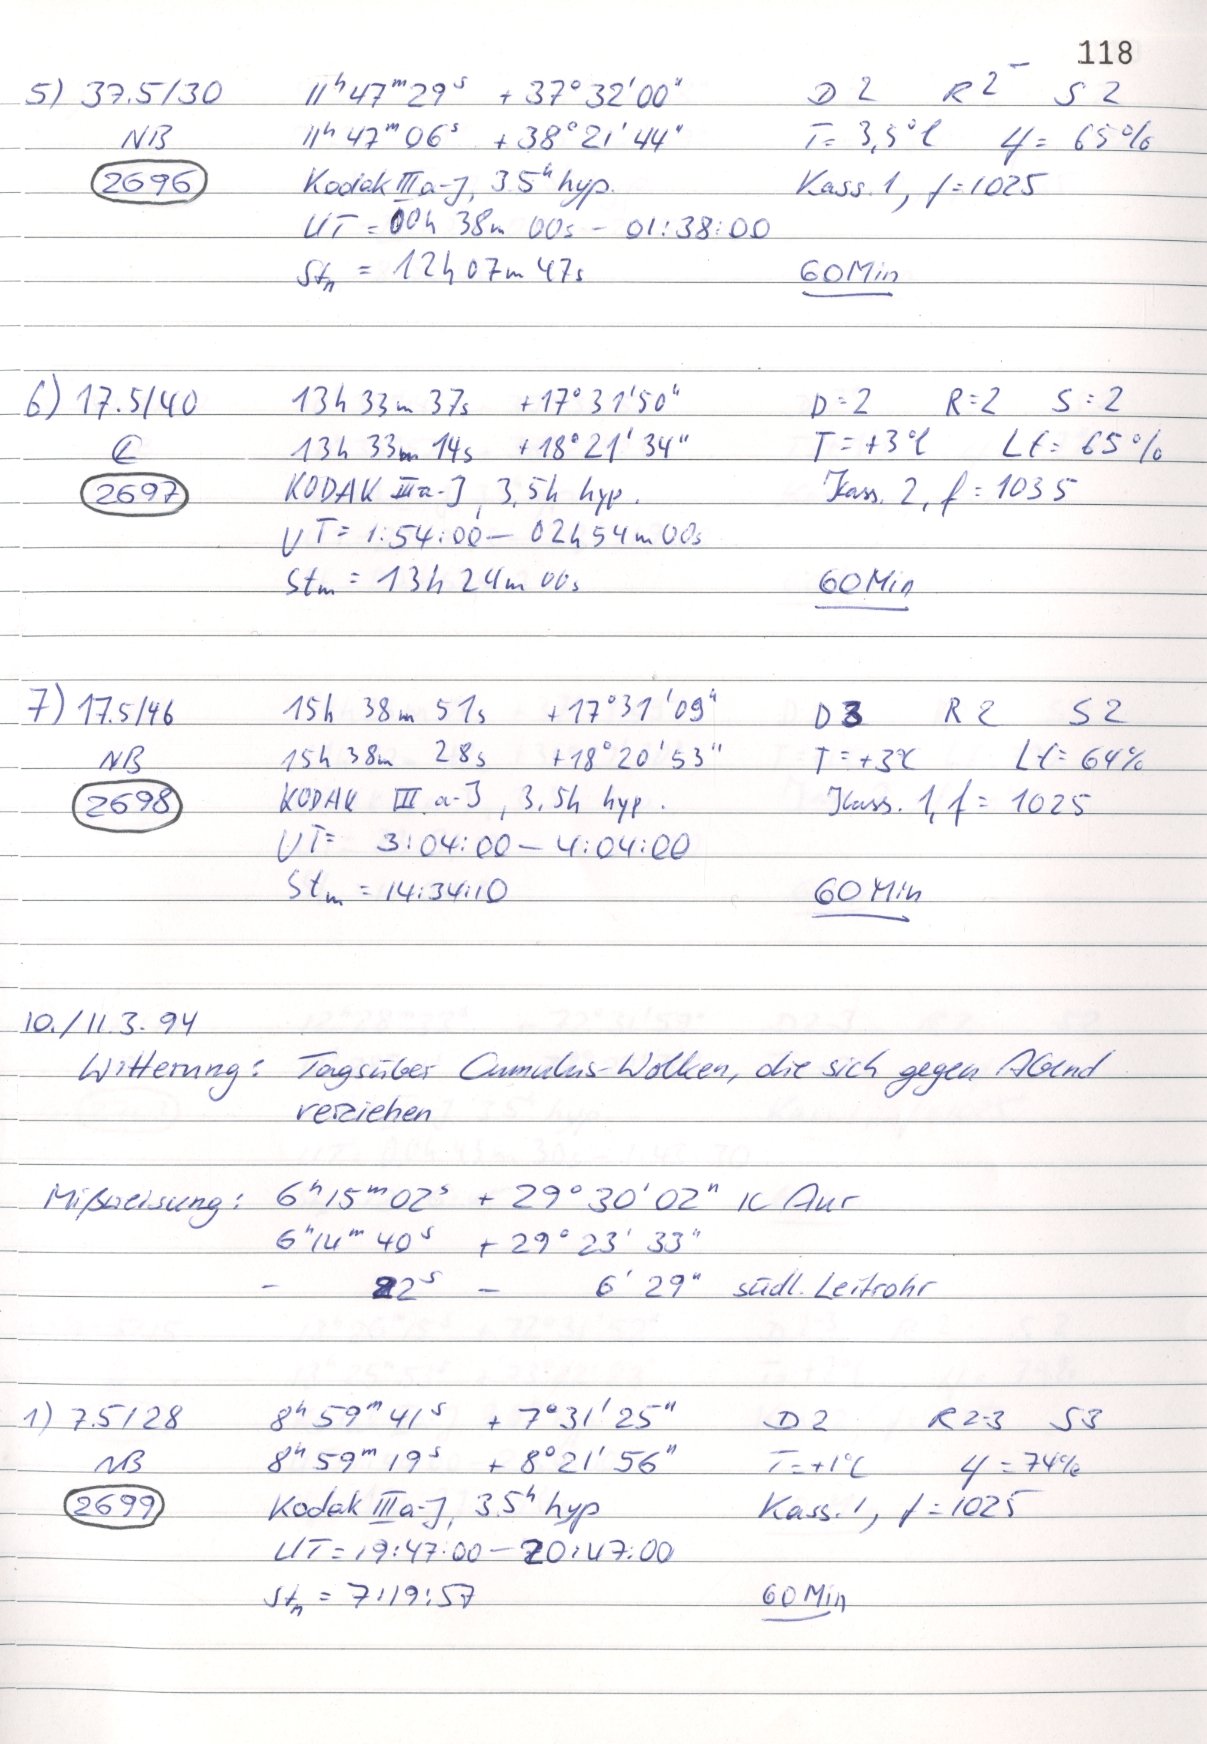 118
5) 37.5/30 11ʰ47ᵐ29ˢ +37°32'00" D 2 R 2⁻ S 2
NB 11ʰ47ᵐ06ˢ +38°21'44" T= 3,5°C Lf= 65%
2696 Kodak IIIa-J, 3.5ʰ hyp. Kass. 1, f=1025
UT = 00h 38m 00s - 01:38:00
Stₘ = 12h 07m 47s 60Min
6) 17.5/40 13h 33m 37s +17°31'50" D=2 R=2 S=2
13h 33m 14s +18°21'34" T=+3°C Lf= 65%
2697 KODAK IIIa-J, 3,5h hyp. Kass. 2, f= 1035
UT= 1:54:00- 02h54m00s
Stₘ = 13h 24m 00s 60Min
7) 17.5/46 15h 38m 51s +17°31'09" D3 R 2 S 2
NB 15h 38m 28s +18°20'53" T=+3°C Lf= 64%
2698 KODAK III a-J, 3,5h hyp. Kass. 1, f= 1025
UT= 3:04:00-4:04:00
Stₘ = 14:34:10 60Min
10./11.3.94
Witterung: Tagsüber Cumulus-Wolken, die sich gegen Abend
verziehen
Mißweisung: 6ʰ15ᵐ02ˢ +29°30'02" κ Aur
6ʰ14ᵐ40ˢ +29°23'33"
- 22ˢ - 6'29" südl. Leitrohr
1) 7.5/28 8ʰ59ᵐ41ˢ +7°31'25" D2 R2-3 S3
NB 8ʰ59ᵐ19ˢ +8°21'56" T=+1°C Lf=74%
2699 Kodak IIIa-J, 3.5ʰ hyp Kass. 1, f=1025
UT=19:47:00-20:47:00
Stₘ = 7:19:57 60Min